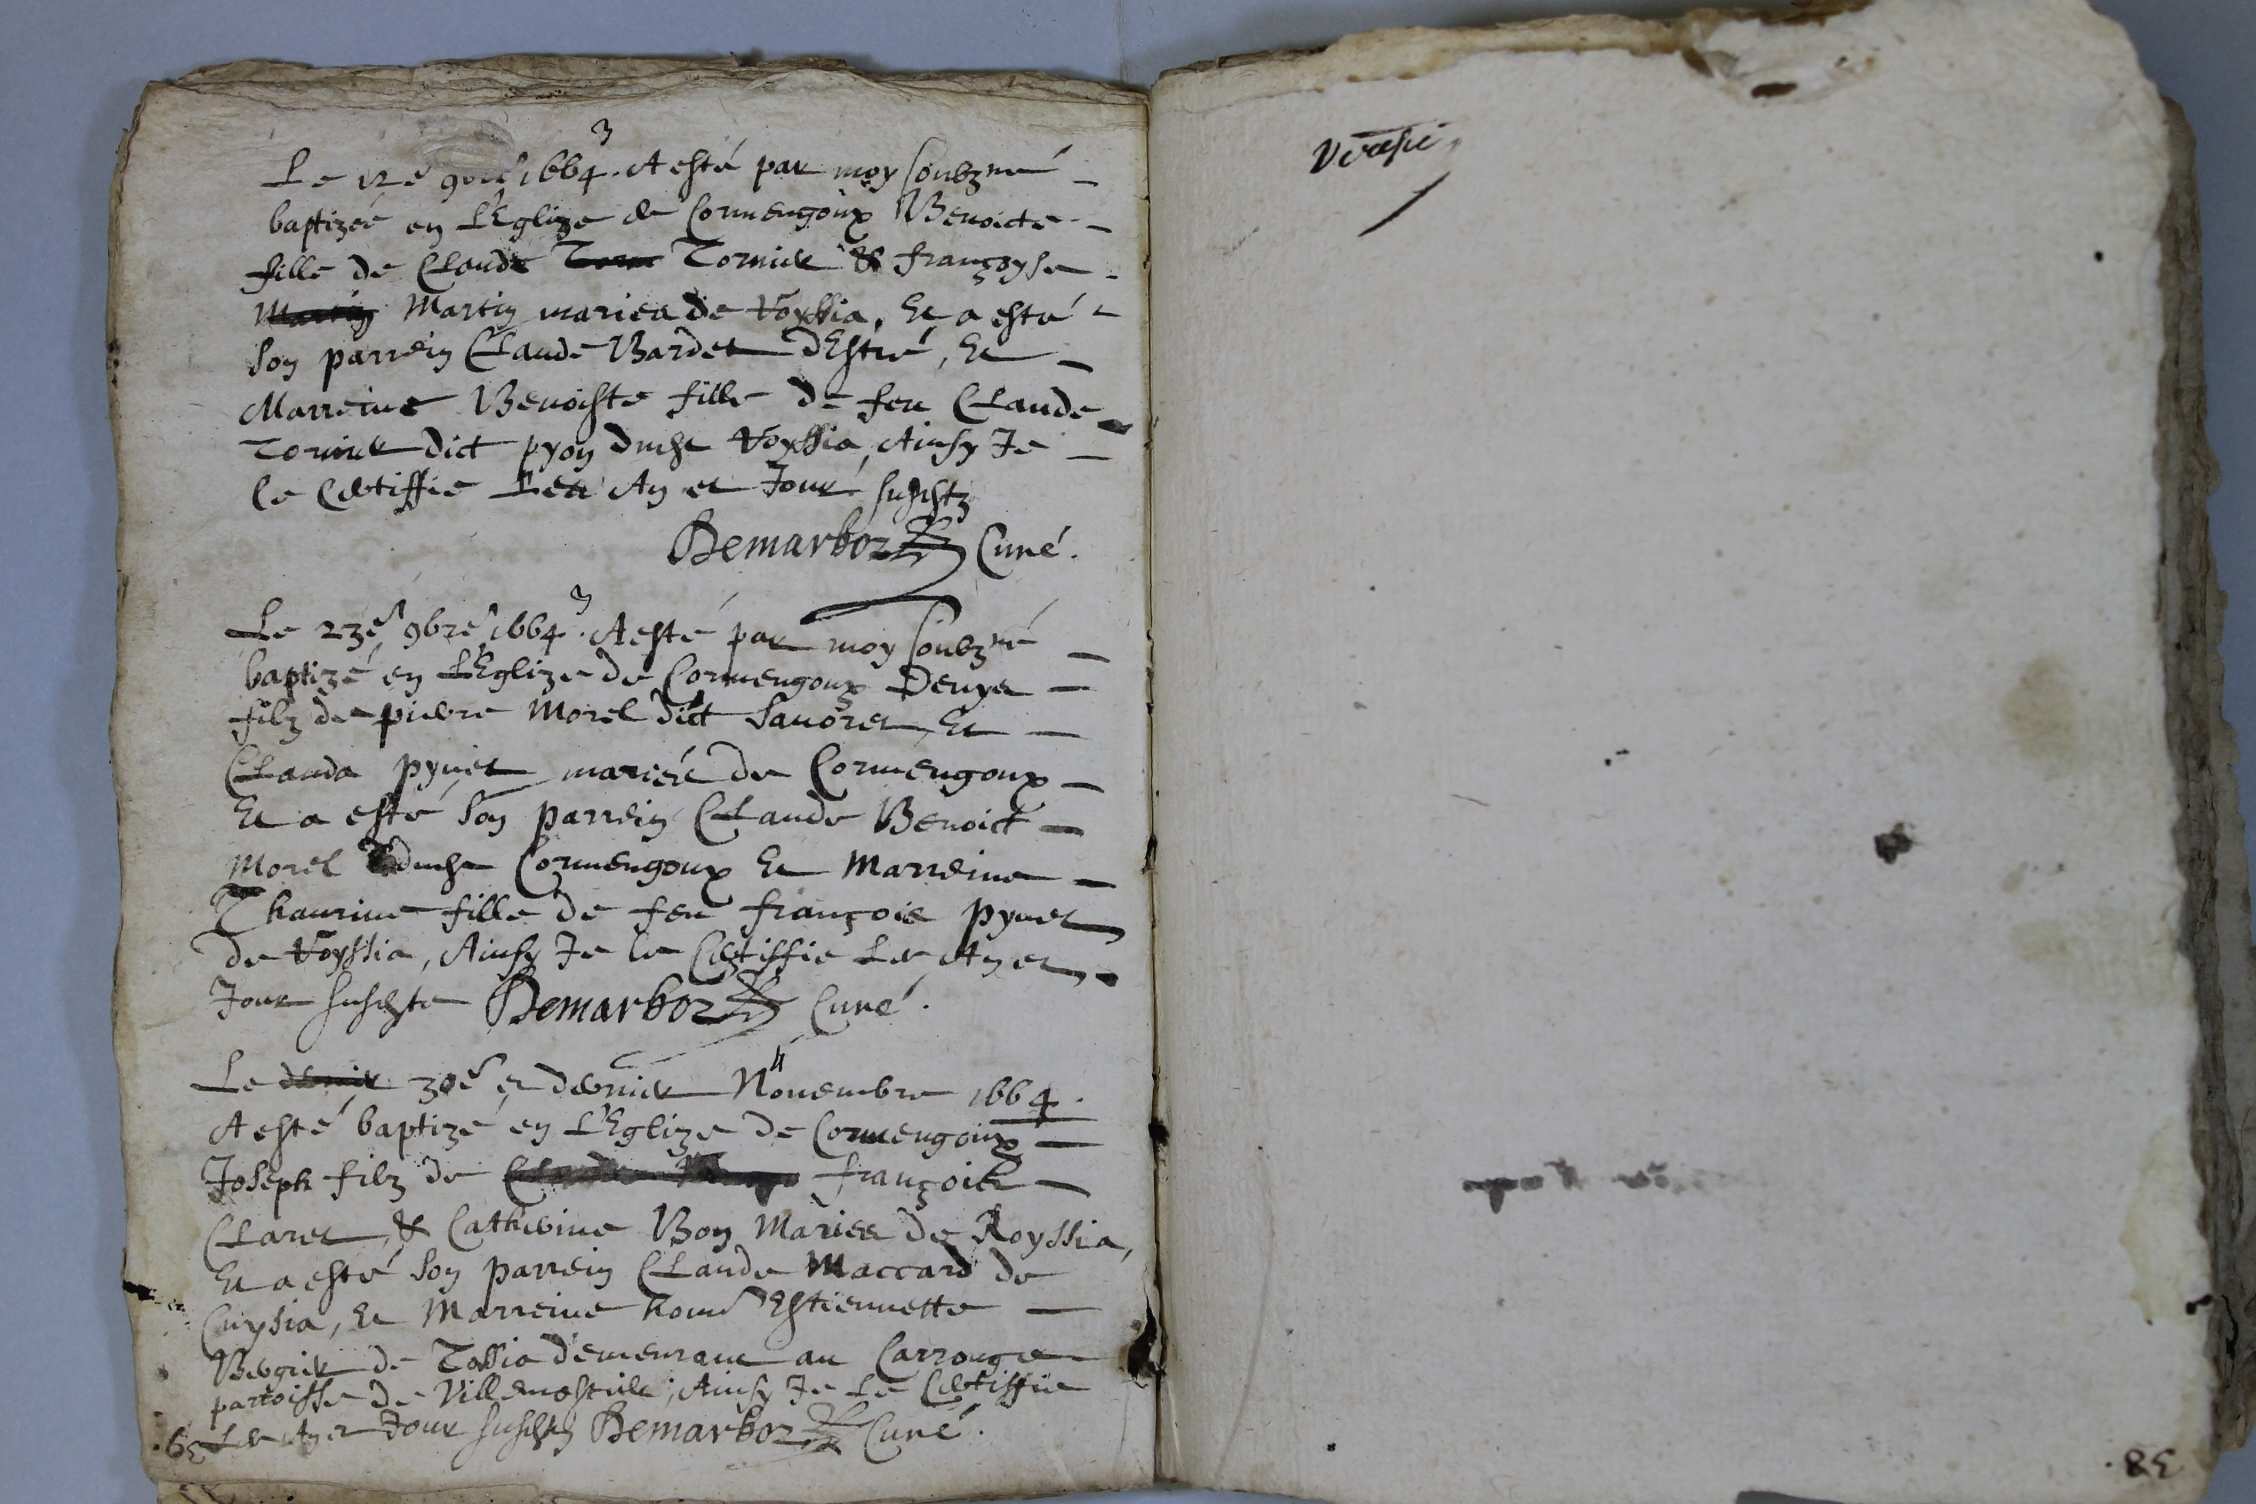 Le 12e 9bre 1664. 3 A esté par moy soubzné
baptizée en L'Eglize de Cormengoux Benoicte
fille de Claude Tornier & françoyse
Martin mariés de Royssia, Et a esté
son parrein Claude Bardet d'Estré, Et
Marreine Benoiste fille de feu Claude
Tornier dict pyon dudict Royssia, Ainsy Je
le Certiffie Les An et Jour susdictz
Demarboz Curé.
Le 23e 9bre 1664. 3 A esté par moy soubzné
baptizé en L'Eglize de Cormengoux Denys
filz de pierre Morel dict Sauoret, Et
Clauda pynet mariés de Cormengoux
Et a esté son parrein Claude Benoict
Morel dudict Cormengoux Et Marreine
Thaurine fille de feu françois pynet
de Royssia, Ainsy Je le Certiffie Les An et
Jour susdictz Demarboz Curé.
Le 30e et dernier Nouembre 1664. 4
A esté baptizé en L'Eglize de Cormengoux
Joseph filz de françois
Claret, & Catherine Bon Mariés de Royssia,
Et a esté son parrein Claude Maccard de
Cuysia, Et Marreine honne Estiennette
Bergier de Tossia demeurant au Carrouge
parroisse de Villemostier, Ainsy Je Le Certiffie
Les An et Jour susdictz Demarboz Curé.
38.